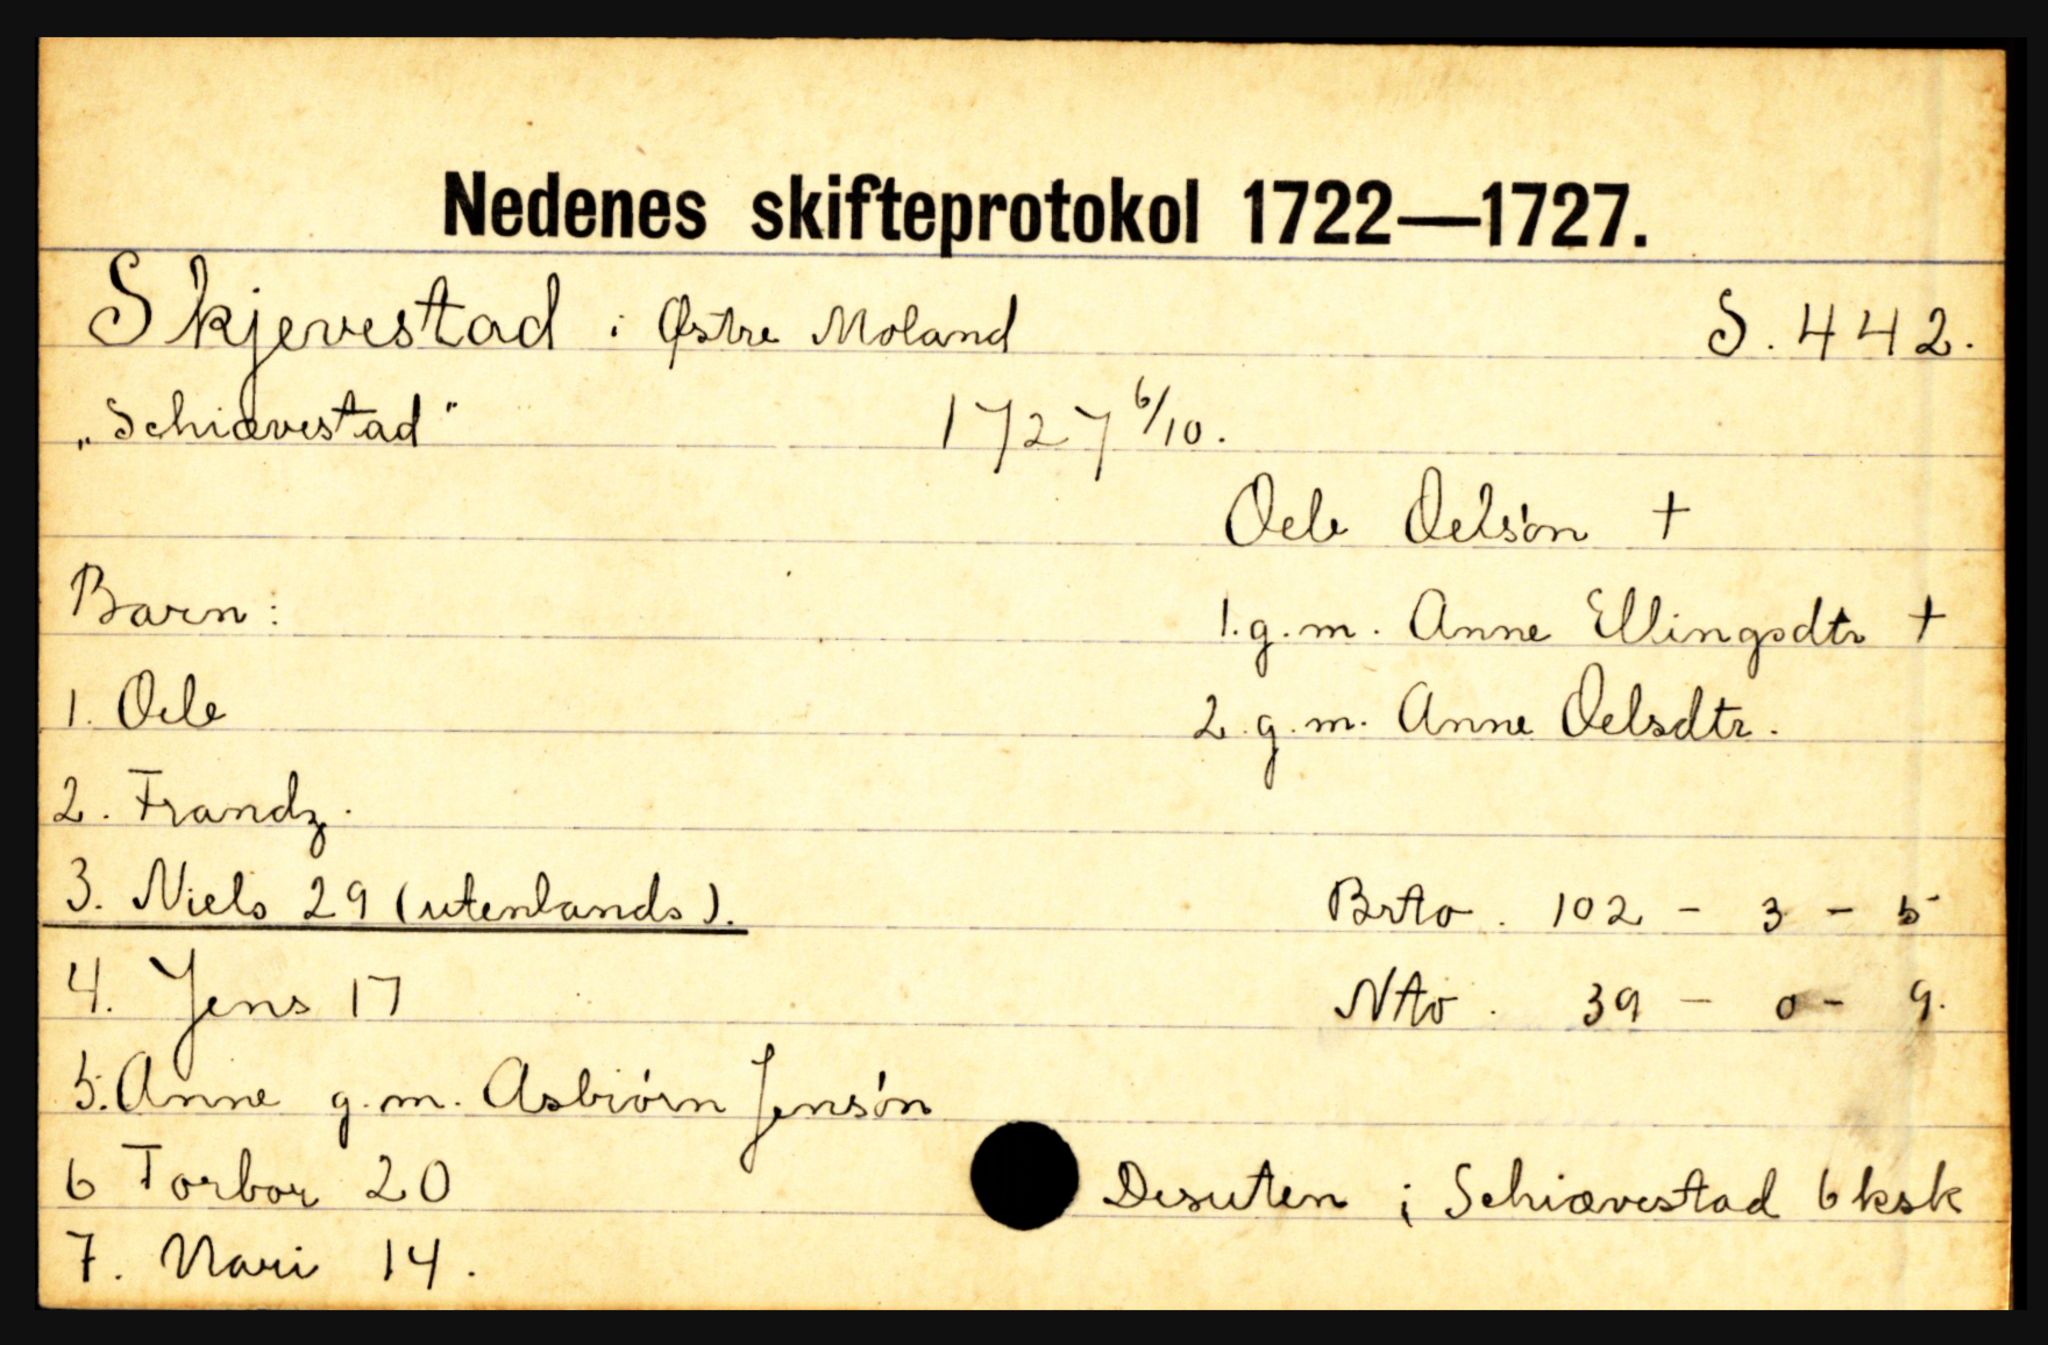 Nedenes skifteprotokol 1722—1727.
Skjevestad i Østre Moland S. 442.
„Schiævestad" 1727 6/10.
Oele Oelsøn +
Barn: 1. g. m. Anne Ellingsdtr +
1. Oele 2. g. m. Anne Oelsdtr.
2. Frandz.
3. Niels 29 (utenlands). Brto. 102 - 3 - 5
4. Jens 17 Nto. 39 - 0 - 9.
5. Anne g. m. Asbiørn Jensøn
6 Torbor 20 Desuten i Schiævestad 6 ksk
7. Mari 14.